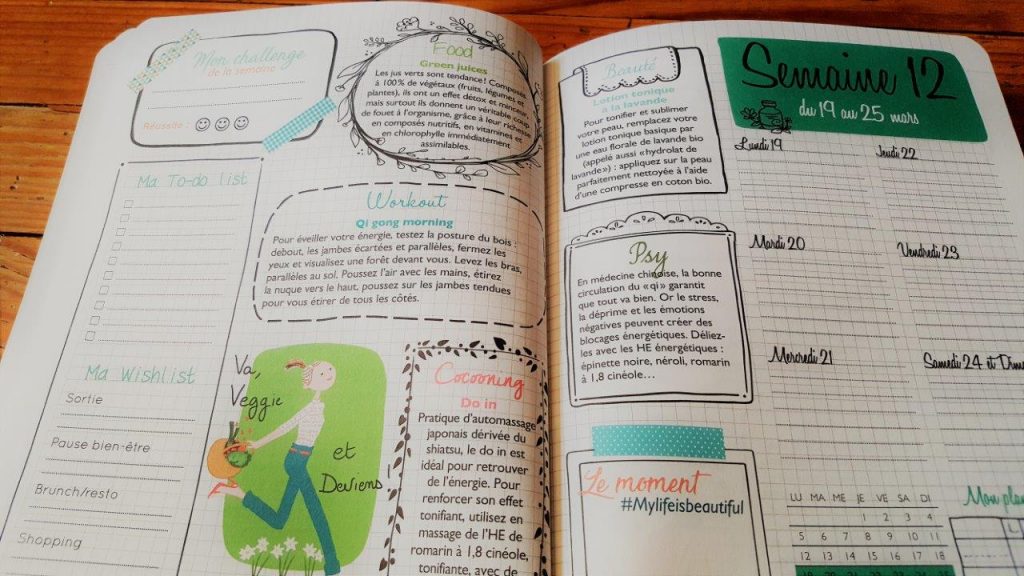 Mon challenge
de la semaine
Réussite :
Ma To-do list
Ma Wishlist
Sortie
Pause bien-être
Brunch/resto
Shopping
Food
Green juices
Les jus verts sont tendance ! Composés
à 100 % de végétaux (fruits, légumes et
plantes), ils ont un effet détox et minceur,
mais surtout ils donnent un véritable coup
de fouet à l'organisme, grâce à leur richesse
en composés nutritifs, en vitamines et
en chlorophylle immédiatement
assimilables.
Workout
Qi gong morning
Pour éveiller votre énergie, testez la posture du bois :
debout, les jambes écartées et parallèles, fermez les
yeux et visualisez une forêt devant vous. Levez les bras,
parallèles au sol. Poussez l'air avec les mains, étirez
la nuque vers le haut, poussez sur les jambes tendues
pour vous étirer de tous les côtés.
Va,
Veggie
et
Deviens
Cocooning
Do in
Pratique d'automassage
japonais dérivée du
shiatsu, le do in est
idéal pour retrouver
de l'énergie. Pour
renforcer son effet
tonifiant, utilisez en
massage de l'HE de
romarin à 1,8 cinéole,
tonifiante, avec de
Beauté
Lotion tonique
à la lavande
Pour tonifier et sublimer
votre peau, remplacez votre
lotion tonique basique par
une eau florale de lavande bio
(appelé aussi « hydrolat de
lavande ») : appliquez sur la peau
parfaitement nettoyée à l'aide
d'une compresse en coton bio.
Psy
En médecine chinoise, la bonne
circulation du « qi » garantit
que tout va bien. Or le stress,
la déprime et les émotions
négatives peuvent créer des
blocages énergétiques. Déliez-
les avec les HE énergétiques :
épinette noire, néroli, romarin
à 1,8 cinéole…
Le moment
#Mylifeisbeautiful
Semaine 12
du 19 au 25 mars
Lundi 19
Jeudi 22
Mardi 20
Vendredi 23
Mercredi 21
Samedi 24 et
LU MA ME JE VE SA DI
1 2 3 4
5 6 7 8 9 10 11
12 13 14 15 16 17 18
Mon